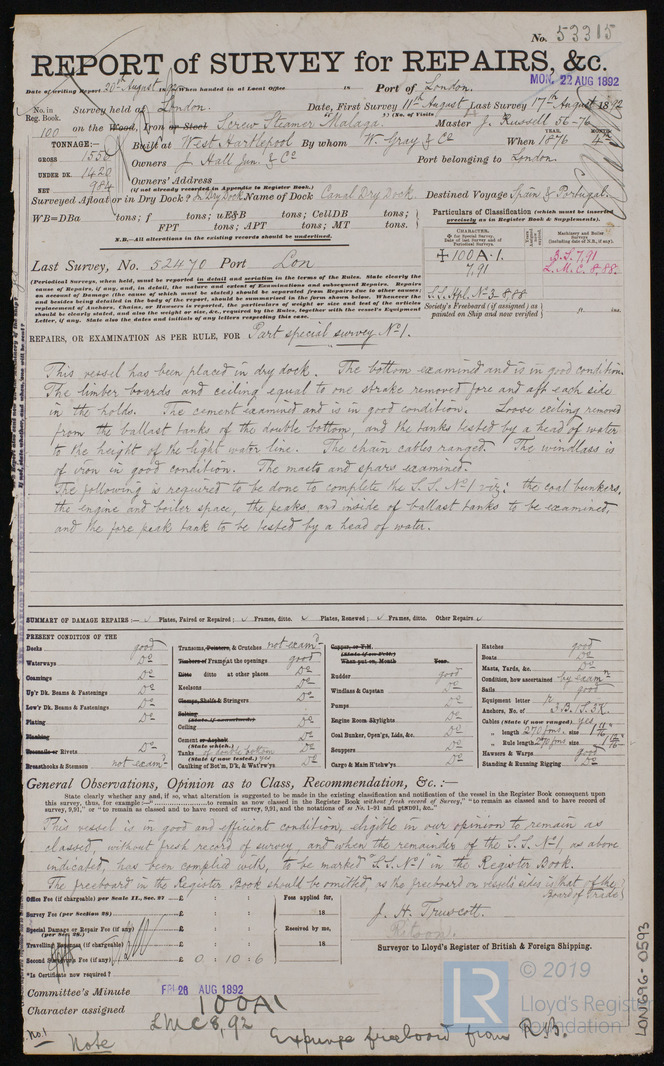 No. 53315
REPORT of SURVEY for REPAIRS, &c.
MON. 22 AUG 1892
Date of writing Report 20th August When handed in at Local Office Port of London.
No. in Reg. Book. Survey held at London. Date, First Survey 11th August Last Survey 17th August 1892
100 on the Wood, Iron or Steel Screw Steamer Malaga (No. of Visits Master J. Russell 56-76
TONNAGE:— Built at West Hartlepool By whom W. Gray & Co When 1876 MONTH 4th
GROSS 1550 Owners J Hall Jun. & Co Port belonging to London.
UNDER DK. 1420 Owners' Address
NET 984 (if not already recorded in Appendix to Register Book.)
Surveyed Afloat or in Dry Dock? In Dry Dock Name of Dock Canal Dry Dock. Destined Voyage Spain & Portugal.
WB=DBa tons; f tons; uE&B tons; CellDB tons;
FPT tons; APT tons; MT tons.
N.B.—All alterations in the existing records should be underlined.
Particulars of Classification (which must be inserted precisely as in Register Book & Supplements).
CHARACTER.
✠ 100A·1.
7,91
B.S. 7,91
L.M.C. 8,88
S.S. Hpl. No 3-8,88
Society's Freeboard (if assigned) as painted on Ship and now verified ft. ins.
Last Survey, No. 52470 Port Lon
REPAIRS, OR EXAMINATION AS PER RULE, FOR Part special survey No 1.
This vessel has been placed in dry dock. The bottom examined and is in good condition.
The limber boards and ceiling equal to one strake removed fore and aft each side
in the holds. The cement examined and is in good condition. Loose ceiling removed
from the ballast tanks of the double bottom, and the tanks tested by a head of water
to the height of the light water line. The chain cables ranged. The windlass is
of iron in good condition. The masts and spars examined.
The following is required to be done to complete the S.S. No 1 viz: the coal bunkers,
the engine and boiler space, the peaks, and inside of ballast tanks to be examined,
and the fore peak tank to be tested by a head of water.
SUMMARY OF DAMAGE REPAIRS:— Plates, Faired or Repaired; Frames, ditto. Plates, Renewed; Frames, ditto. Other Repairs
PRESENT CONDITION OF THE
Decks good
Waterways Do
Coamings Do
Up'r Dk. Beams & Fastenings Do
Low'r Dk. Beams & Fastenings Do
Plating Do
Planking
Treenails or Rivets Do
Breasthooks & Stemson not examd
Transoms, Pointers, & Crutches not examd
Timbers of Frame at the openings good
Ditto ditto at other places Do
Keelsons Do
Clamps, Shelfs & Stringers Do
Salting (State if examined.)
Ceiling Do
Cement or Asphalt (State which.) Do
Tanks of double bottom (State if now tested.) yes
Caulking of Bot'm, D'k, & Wat'rw'ys Do
Copper, or Y.M. (State if on Felt.)
When put on, Month Year.
Rudder good
Windlass & Capstan Do
Pumps Do
Engine Room Skylights Do
Coal Bunker, Open'gs, Lids, &c. Do
Scuppers Do
Cargo & Main H'tchw'ys Do
Hatches good
Boats Do
Masts, Yards, &c. Do
Condition, how ascertained by examn
Sails good
Equipment letter
Anchors, No. of 3.B. 1.S. 3K.
Cables (State if now ranged.) yes
„ length 270 fms. size
„ Rule length 270 fms. size
Hawsers & Warps good
Standing & Running Rigging Do
General Observations, Opinion as to Class, Recommendation, &c. :—
State clearly whether any, and if so, what alteration is suggested to be made in the existing classification and notification of the vessel in the Register Book consequent upon
this survey, thus, for example:—"............to remain as now classed in the Register Book without fresh record of Survey," "to remain as classed and to have record of
survey, 9,91," or "to remain as classed and to have record of survey, 9,91, and the notations of ss No. 1-91 and ptND91, &c., &c."
This vessel is in good and efficient condition, eligible in our opinion to remain as
classed, without fresh record of survey, and when the remainder of the S.S. No 1, as above
indicated, has been complied with, to be marked "S.S. No 1" in the Register Book.
The freeboard in the Register Book should be omitted, as the freeboard on vessels' sides is that of the
Board of Trade
Office Fee (if chargeable) per Scale II., Sec. 27 £ : :
Survey Fee (per Section 28) £ : :
Special Damage or Repair Fee (if any) (per Sec. 28.) £ : :
Travelling Expenses (if chargeable) £ : :
Second Fee (if any) £ 0 : 10 : 6
Fees applied for, 18
Received by me, 18
J. H. Truscott.
Surveyor to Lloyd's Register of British & Foreign Shipping.
*Is Certificate now required?
Committee's Minute FRI. 26 AUG 1892
Character assigned 100A1
LMC 8,92
No. 1
Note Expunge freeboard from R.B.
LR
© 2019
Lloyd's Register
Foundation
LON696-0593